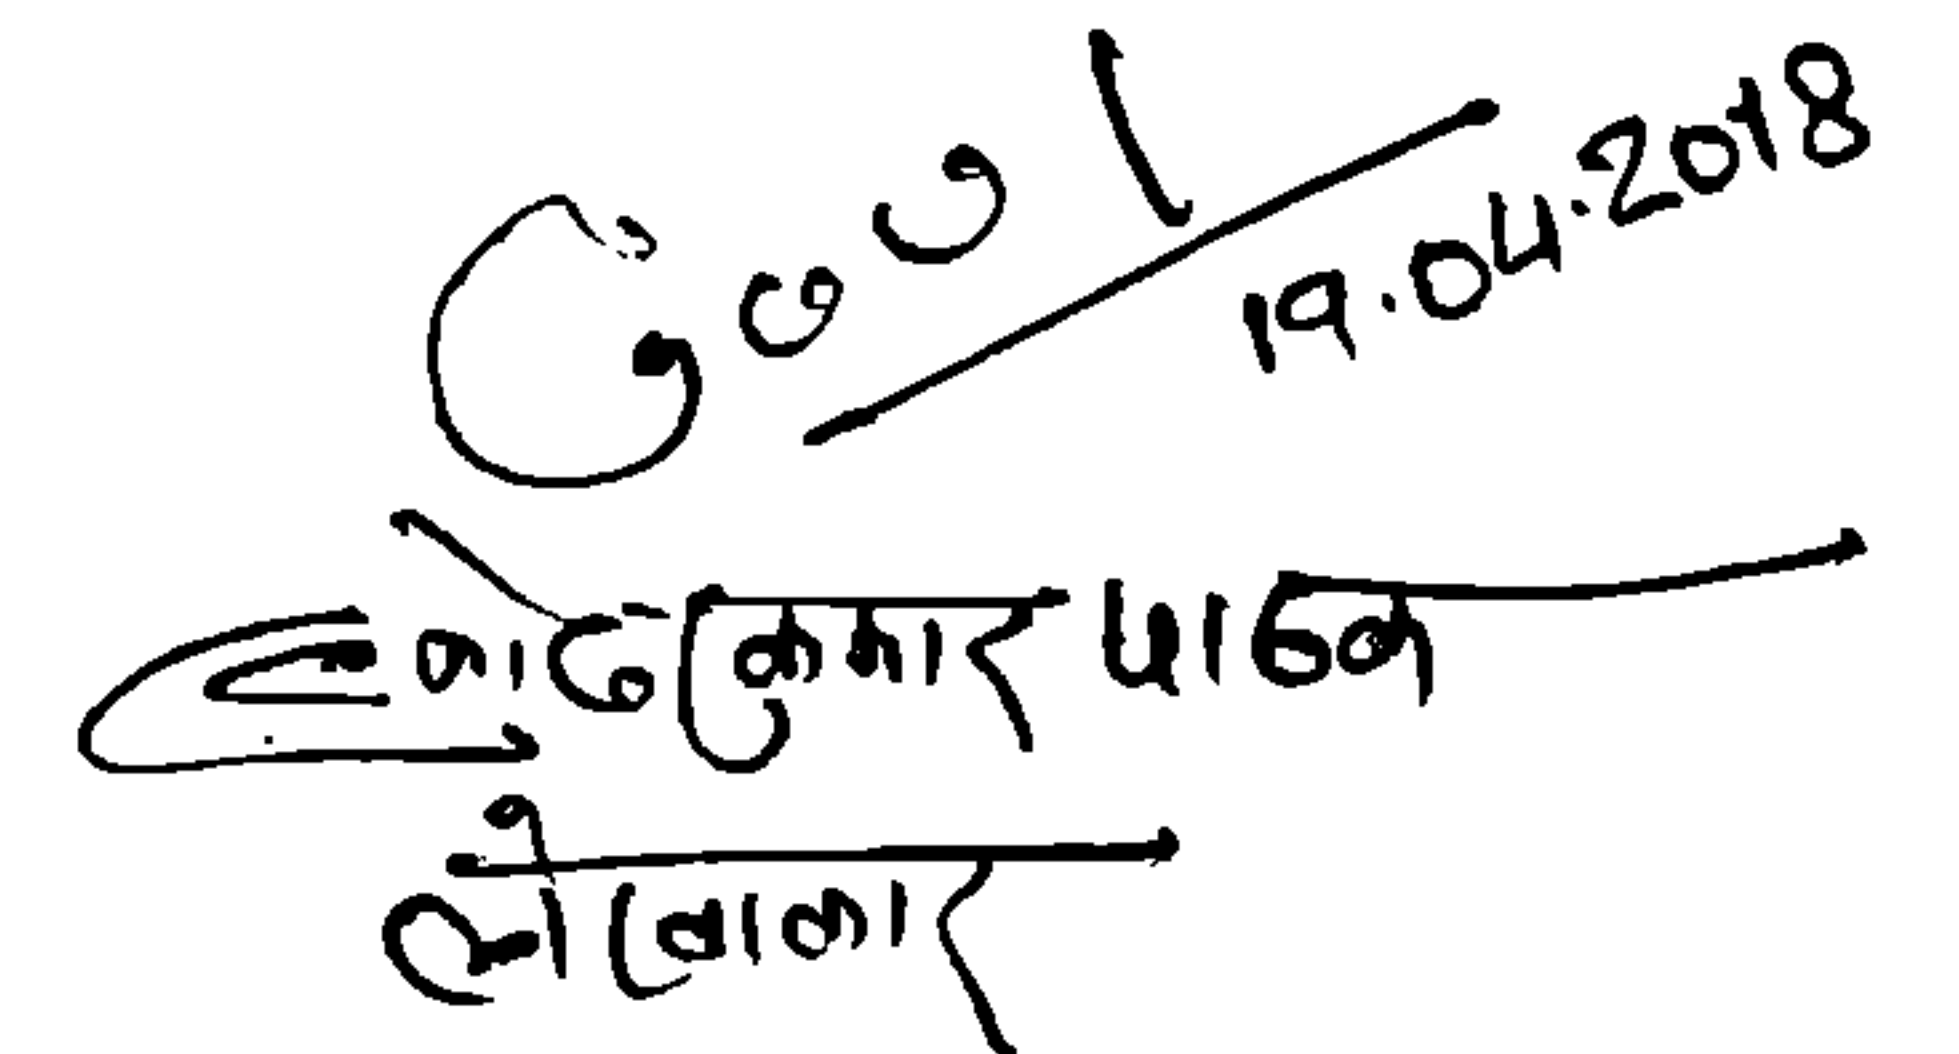 19.04.2018
कुमार पाठक
लेखाकार